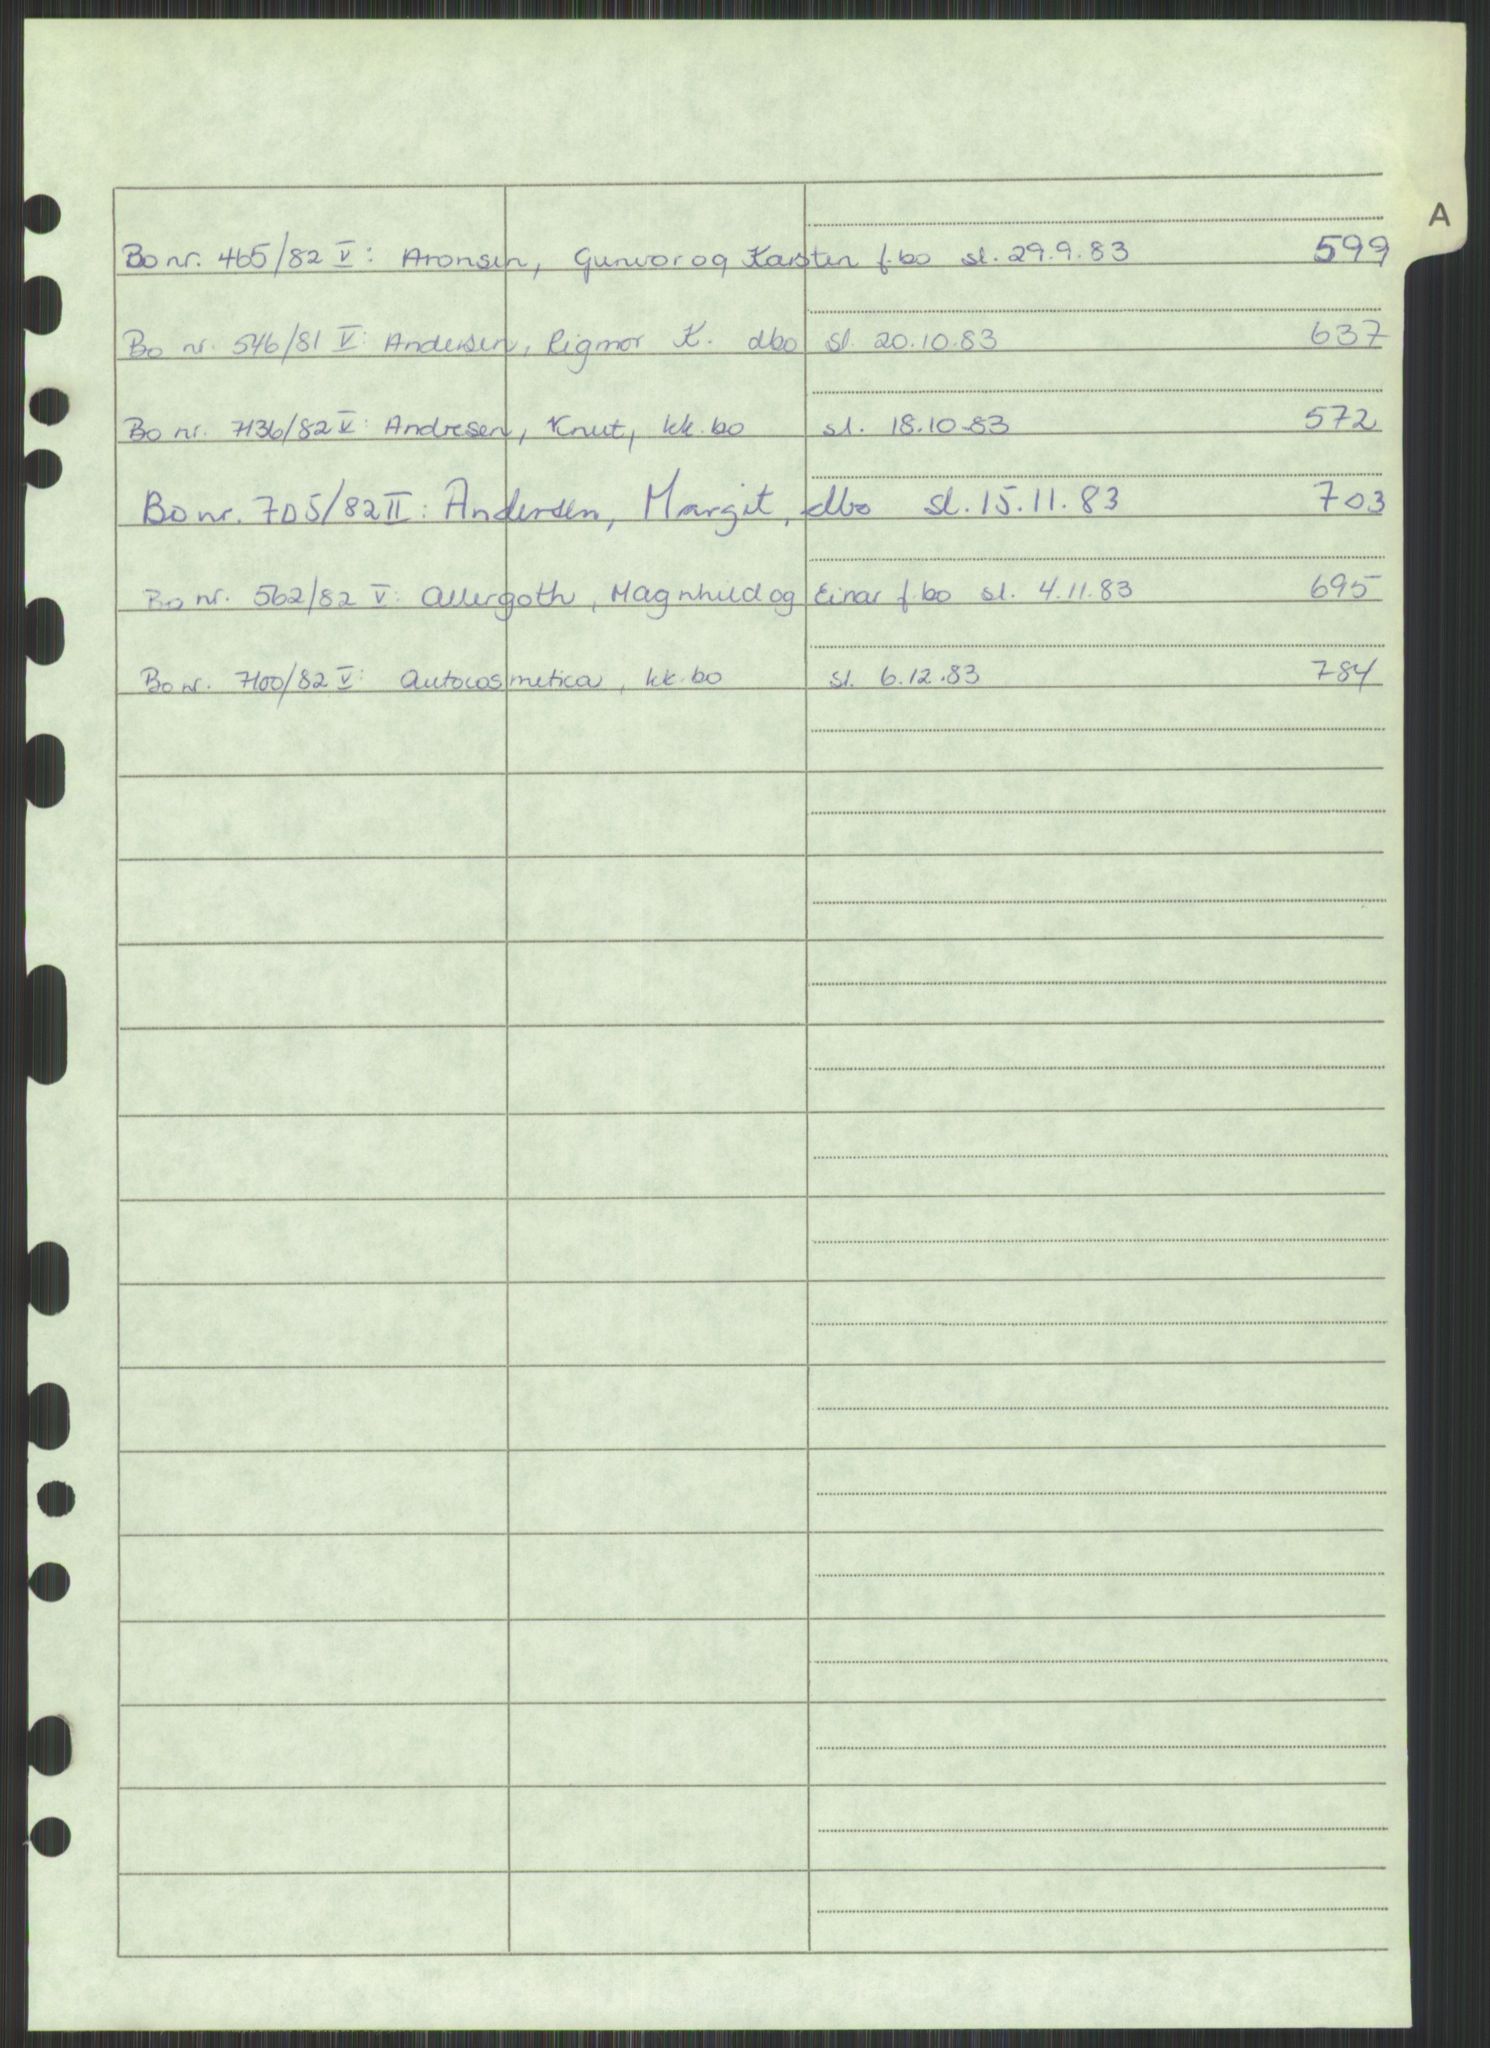 A
Bo nr. 465/82 V: Aronsen, Gunvor og Karsten f.bo sl. 29.9.83 599
Bo nr. 546/81 V: Andersen, Rigmor K. dbo sl. 20.10.83 637
Bo nr. 7136/82 V: Andresen, Knut, kk.bo sl. 18.10.83 572
Bo nr. 705/82 II: Andersen, Margit, dbo sl. 15.11.83 703
Bo nr. 562/82 V: Allergoth, Magnhild og Einar f.bo sl. 4.11.83 695
Bo nr. 7100/82 V: Autocosmetica, kk.bo sl. 6.12.83 784